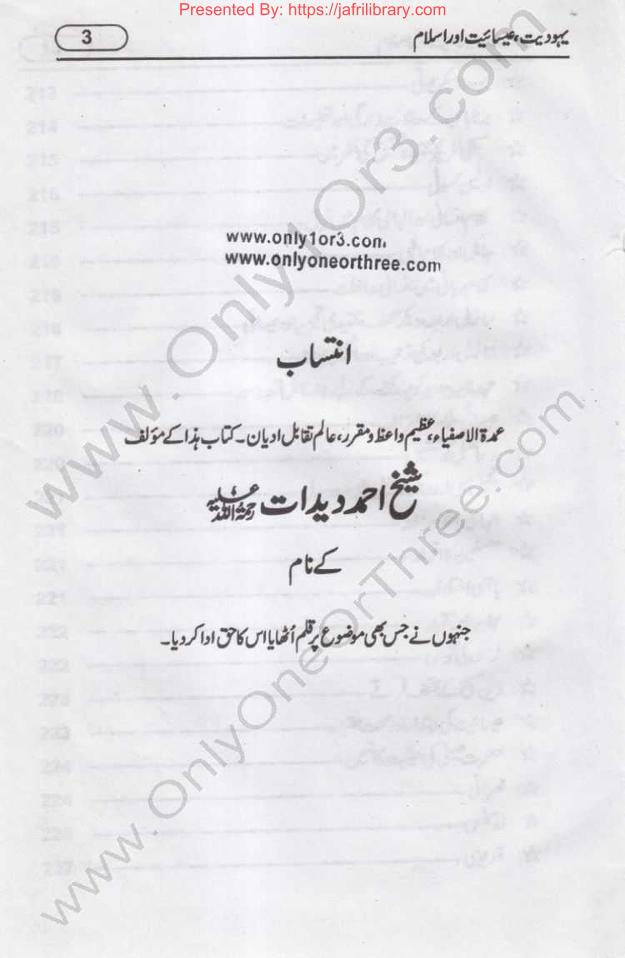 Presented By: https://jafrilibrary.com/
3
یہودیت، عیسائیت اور اسلام
www.only1or3.com
www.onlyoneorthree.com
انتساب
عمدۃ الاصفیاء، عظیم واعظ و مقرر، عالم تقابل ادیان۔ کتاب ہذا کے مؤلف
شیخ احمد دیدات رحمۃ اللہ علیہ
کے نام
جنہوں نے جس بھی موضوع پر قلم اُٹھایا اس کا حق ادا کر دیا۔
www.Only1Or3.com
www.OnlyOneOrThree.com